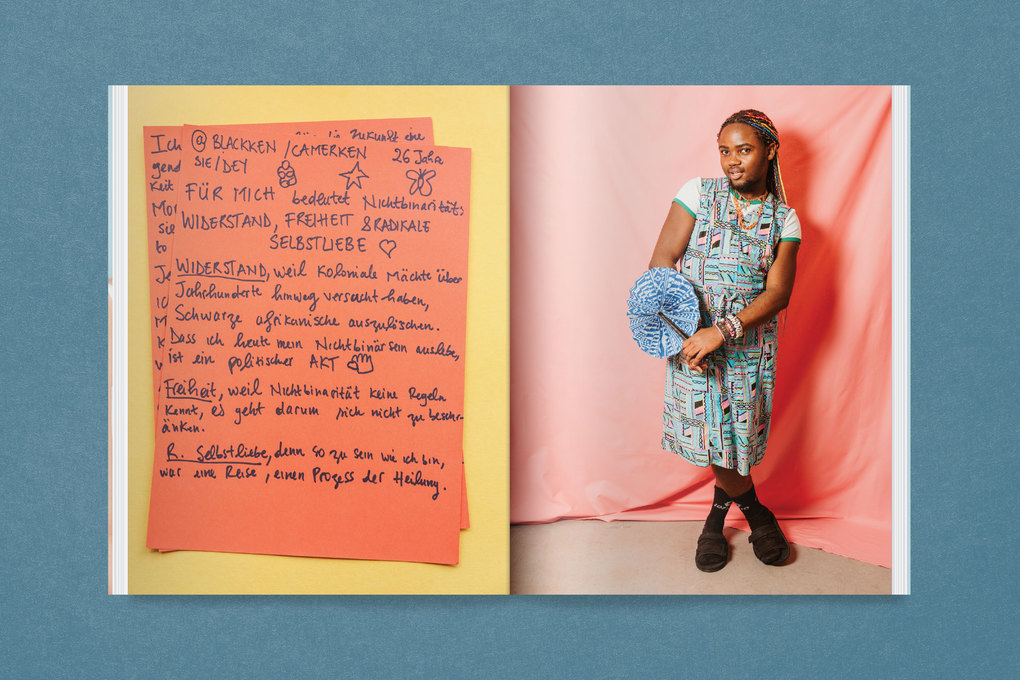 @ BLACKKEN / CAMERKEN 26 Jahre
SIE/DEY
FÜR MICH bedeutet Nichtbinarität
WIDERSTAND, FREIHEIT & RADIKALE
SELBSTLIEBE
WIDERSTAND, weil Koloniale Mächte über
Jahrhunderte hinweg versucht haben,
Schwarze afrikanische auszulöschen.
Dass ich heute mein Nichtbinär sein auslebe,
ist ein politischer AKT
Freiheit, weil Nichtbinarität keine Regeln
kennt, es geht darum sich nicht zu beschr-
änken.
R. Selbstliebe, denn so zu sein wie ich bin,
war eine Reise, einen Prozess der Heilung.
Ich
Zukunft eine
gend
keit